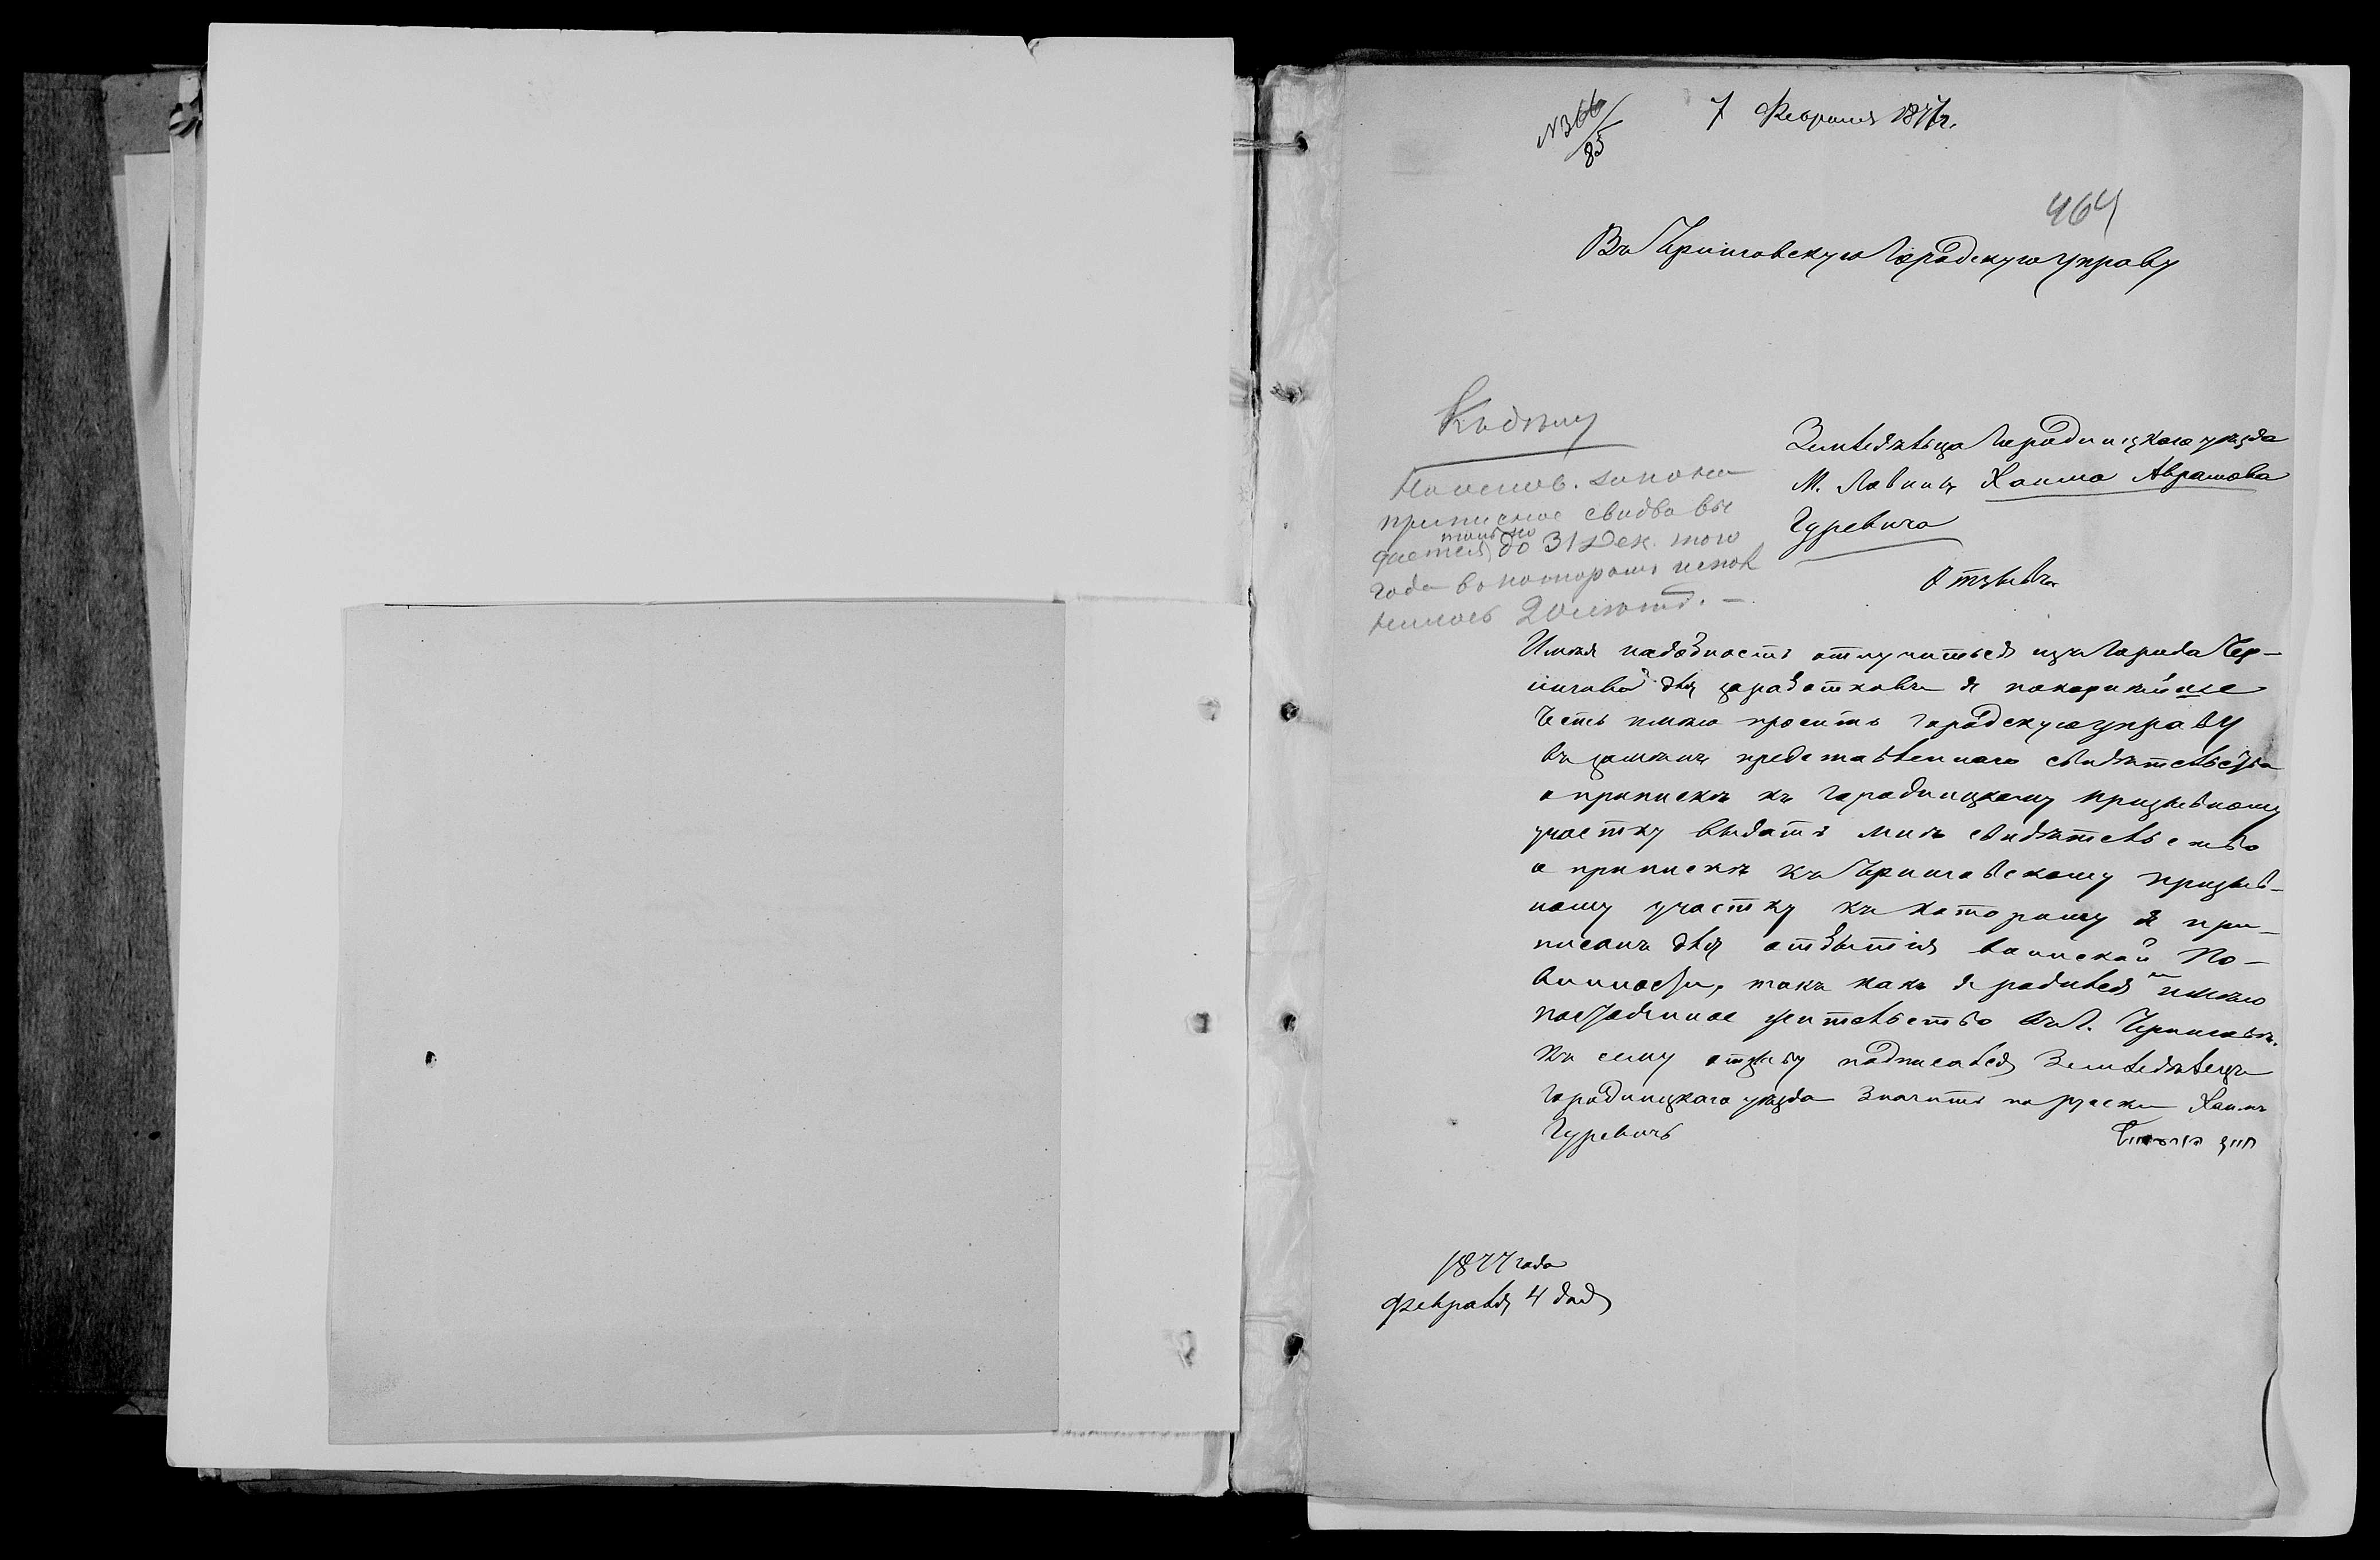 №366/85
7 Февраля 1877г.
464
Въ Черниговскую Городскую управу
Къ дѣлу
На основ. закона
приписное свид-во вы
дается только до 31 Дек. того
года въ которомъ испол
нилось 20 лѣтъ. —
Земледѣльца Городницкаго уѣзда
М. Хаима Абрамова
Гуревича
Отзывъ
Имѣя надобность отлучиться изъ Города Чер-
нигова для заработковъ я покорнѣйше
Честь имѣю просить Городскую управу
въ замѣнъ представленнаго свидѣтельства
о припискѣ къ Городницкому призывному
участку выдать мнѣ свидѣтельство
о припискѣ къ Черниговскому призыв-
ному участку къ которому я при-
писанъ для отбытія воинской По-
винности, такъ какъ я родился и имѣю
постоянное жительство въ Г. Черниговѣ.
Къ сему отзыву подписался Земледѣлецъ
Городницкаго уѣзда Значитъ по русски Хаимъ
Гуревичъ
חיים
1877 года
Февраля 4 дня